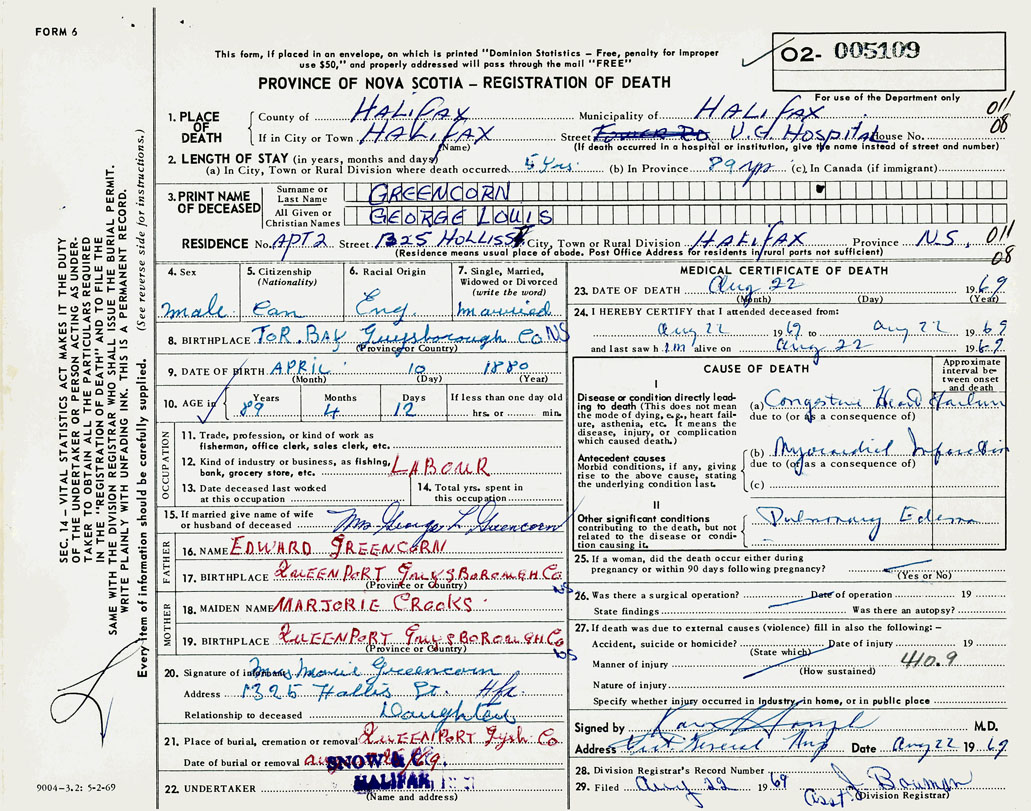 FORM 6
This form, if placed in an envelope, on which is printed "Dominion Statistics – Free, penalty for improper
use $50," and properly addressed will pass through the mail "FREE"
PROVINCE OF NOVA SCOTIA – REGISTRATION OF DEATH
02- 005109
For use of the Department only
1. PLACE OF DEATH
County of HALIFAX Municipality of HALIFAX 011
If in City or Town HALIFAX Street V.G. HOSPITAL House No. 08
(Name) (If death occurred in a hospital or institution, give the name instead of street and number)
2. LENGTH OF STAY (in years, months and days)
(a) In City, Town or Rural Division where death occurred 5 Yrs. (b) In Province 89 yrs (c) In Canada (if immigrant)
3. PRINT NAME OF DECEASED
Surname or Last Name GREENCORN
All Given or Christian Names GEORGE LOUIS
RESIDENCE No. APT 2 Street 1325 HOLLIS ST City, Town or Rural Division HALIFAX Province N.S. 011
(Residence means usual place of abode. Post Office Address for residents in rural parts not sufficient) 08
4. Sex male
5. Citizenship (Nationality) Can
6. Racial Origin Eng.
7. Single, Married, Widowed or Divorced (write the word) married
8. BIRTHPLACE TOR. BAY Guysborough Co NS
(Province or Country)
9. DATE OF BIRTH APRIL 10 1880
(Month) (Day) (Year)
10. AGE in Years 89 Months 4 Days 12 If less than one day old hrs. or min.
OCCUPATION
11. Trade, profession, or kind of work as
fisherman, office clerk, sales clerk, etc.
12. Kind of industry or business, as fishing,
bank, grocery store, etc. LABOUR
13. Date deceased last worked
at this occupation
14. Total yrs. spent in
this occupation
15. If married give name of wife
or husband of deceased Mrs George L Greencorn
FATHER
16. NAME EDWARD GREENCORN
17. BIRTHPLACE QUEENPORT GUYSBOROUGH Co NS
(Province or Country)
MOTHER
18. MAIDEN NAME MARJORIE CROOKS
19. BIRTHPLACE QUEENPORT GUYSBOROUGH Co NS
(Province or Country)
20. Signature of informant Mrs Marie Greencorn
Address 1325 Hollis St. Hfx
Relationship to deceased Daughter
21. Place of burial, cremation or removal QUEENPORT Gysb Co
Date of burial or removal
22. UNDERTAKER SNOW & C. HALIFAX
(Name and address)
MEDICAL CERTIFICATE OF DEATH
23. DATE OF DEATH Aug 22 1969
(Month) (Day) (Year)
24. I HEREBY CERTIFY that I attended deceased from:
Aug 22 1969 to Aug 22 1969
and last saw h im alive on Aug 22 1969
CAUSE OF DEATH
Approximate interval between onset and death
I
Disease or condition directly leading
to death (This does not mean
the mode of dying, e.g., heart failure,
asthenia, etc. It means the
disease, injury, or complication
which caused death.)
(a) Congestive Head Failure
due to (or as a consequence of)
Antecedent causes
Morbid conditions, if any, giving
rise to the above cause, stating
the underlying condition last.
(b) Myocardial Infarction
due to (or as a consequence of)
(c)
II
Other significant conditions
contributing to the death, but not
related to the disease or condition
causing it.
Pulmonary Edema
25. If a woman, did the death occur either during
pregnancy or within 90 days following pregnancy?
(Yes or No)
26. Was there a surgical operation? Date of operation 19
State findings Was there an autopsy?
27. If death was due to external causes (violence) fill in also the following: –
Accident, suicide or homicide? Date of injury 19
(State which)
Manner of injury 410.9
(How sustained)
Nature of injury
Specify whether injury occurred in Industry, in home, or in public place
Signed by M.D.
Address Date Aug 22 1969
28. Division Registrar's Record Number
29. Filed Aug 22 1969 Asst J. Bowman
(Division Registrar)
SEC. 14 – VITAL STATISTICS ACT MAKES IT THE DUTY
OF THE UNDERTAKER OR PERSON ACTING AS UNDER-
TAKER TO OBTAIN ALL THE PARTICULARS REQUIRED
IN THE "REGISTRATION OF DEATH" AND TO FILE THE
SAME WITH THE DIVISION REGISTRAR WHO SHALL ISSUE THE BURIAL PERMIT.
WRITE PLAINLY WITH UNFADING INK. THIS IS A PERMANENT RECORD.
Every item of information should be carefully supplied. (See reverse side for instructions.)
9004–3.2: 5-2-69